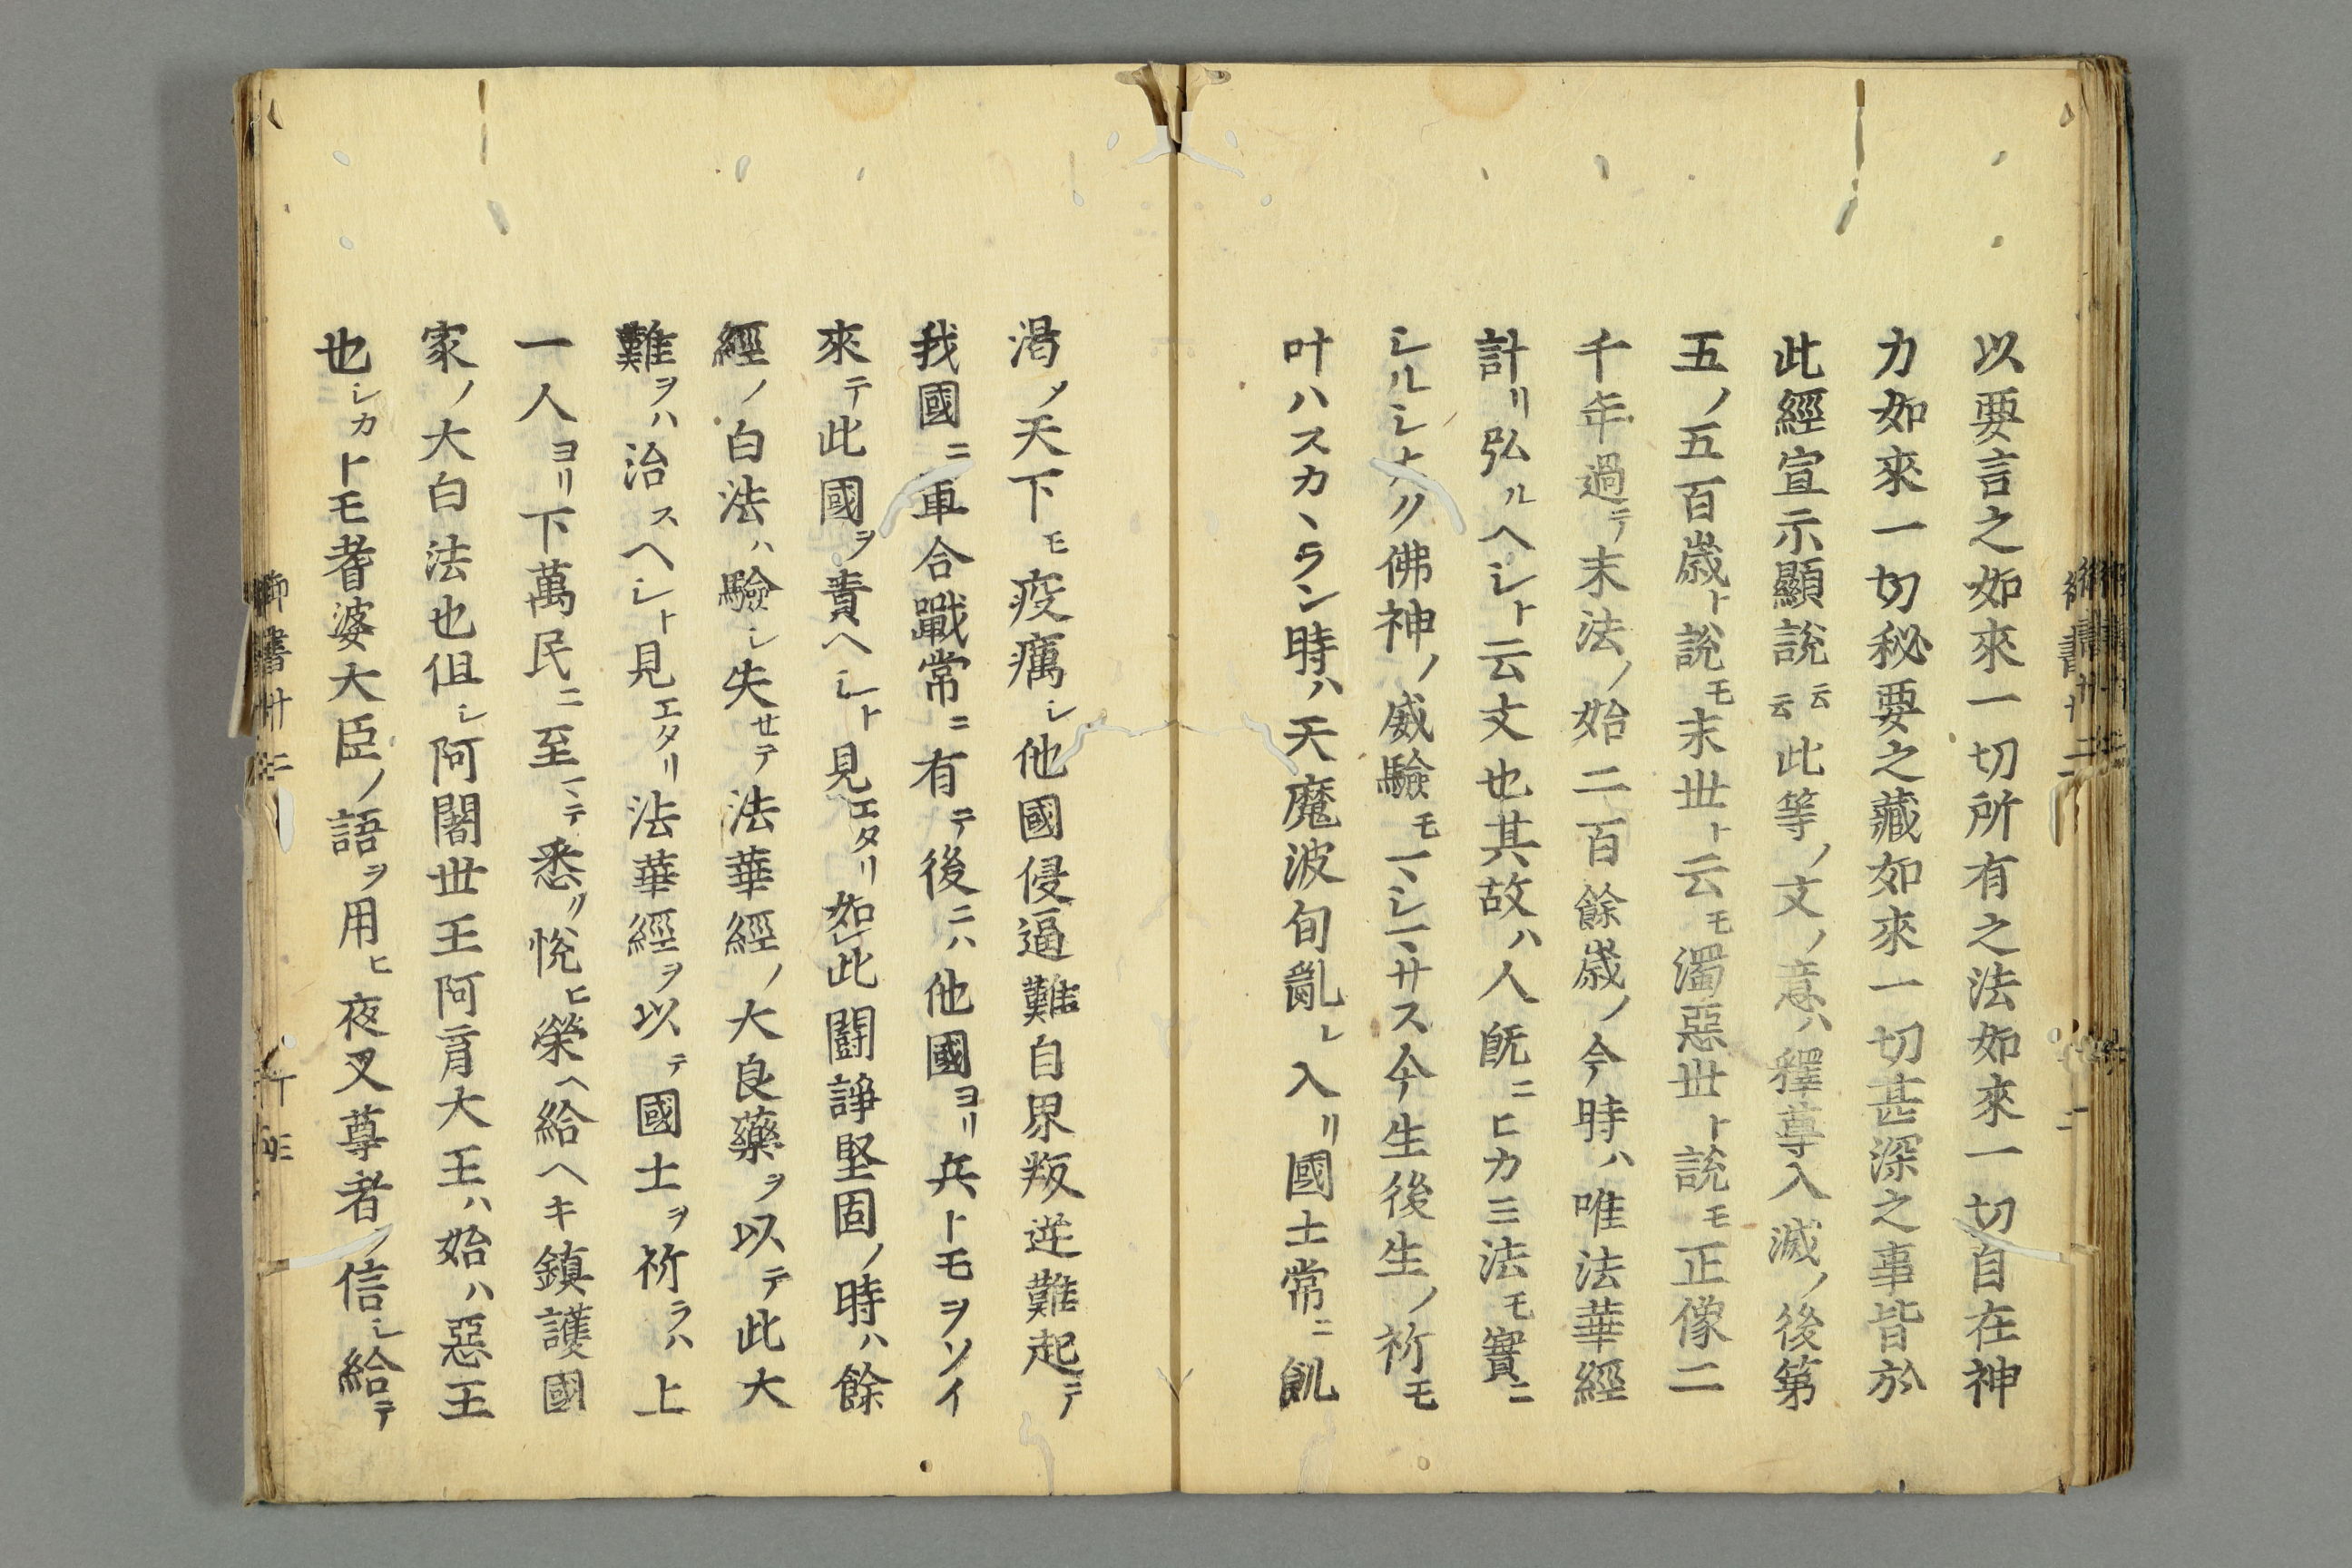 以要言之如來一切所有之法如來一切自在神
力如來一切秘要之藏如來一切甚深之事皆於
此經宣示顯說云云此等ノ文ノ意ハ釋尊入滅ノ後第
五ノ五百歳ト說モ末世ト云モ濁惡世ト說モ正像二
千年過テ末法ノ始二百餘歳ノ今時ハ唯法華經
計リ弘ルヘシト云文也其故ハ人既ニヒカミ法モ實ニ
シルシナク佛神ノ威驗モマシマサス今生後生ノ祈モ
叶ハスカヽラン時ハ天魔波旬亂レ入リ國土常ニ飢
渇メ天下モ疫癘シ他國侵逼難自界叛逆難起テ
我國ニ軍合戰常ニ有テ後ニハ他國ヨリ兵トモヲソイ
來テ此國ヲ責ヘシト見エタリ如此鬪諍堅固ノ時ハ餘
經ノ白法ハ驗シ失セテ法華經ノ大良藥ヲ以テ此大
難ヲハ治スヘシト見エタリ法華經ヲ以テ國土ヲ祈ラハ上
一人ヨリ下萬民ニ至マテ悉ク悅ヒ榮ヘ給ヘキ鎮護國
家ノ大白法也但シ阿闍世王阿育大王ハ始ハ惡王
也シカトモ耆婆大臣ノ語ヲ用ヒ夜叉尊者ノ信シ給テ
御書卅二